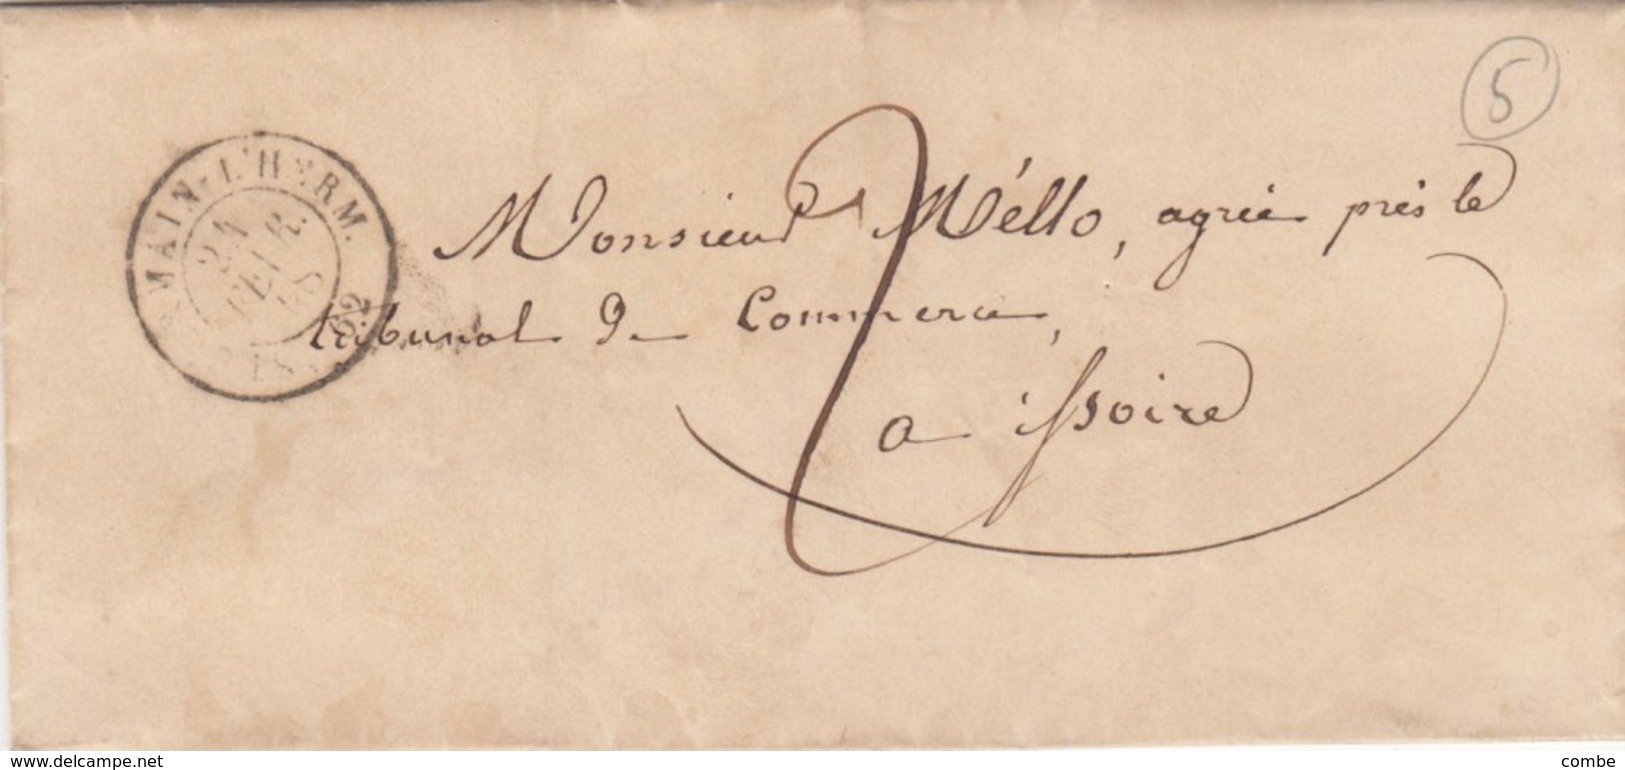 5
MAIN-L'HERM.
21
FEVR.
48
62
2
Monsieur Méllo, agrée près le
tribunal de Commerce,
a issoire
www.delcampe.net
combe